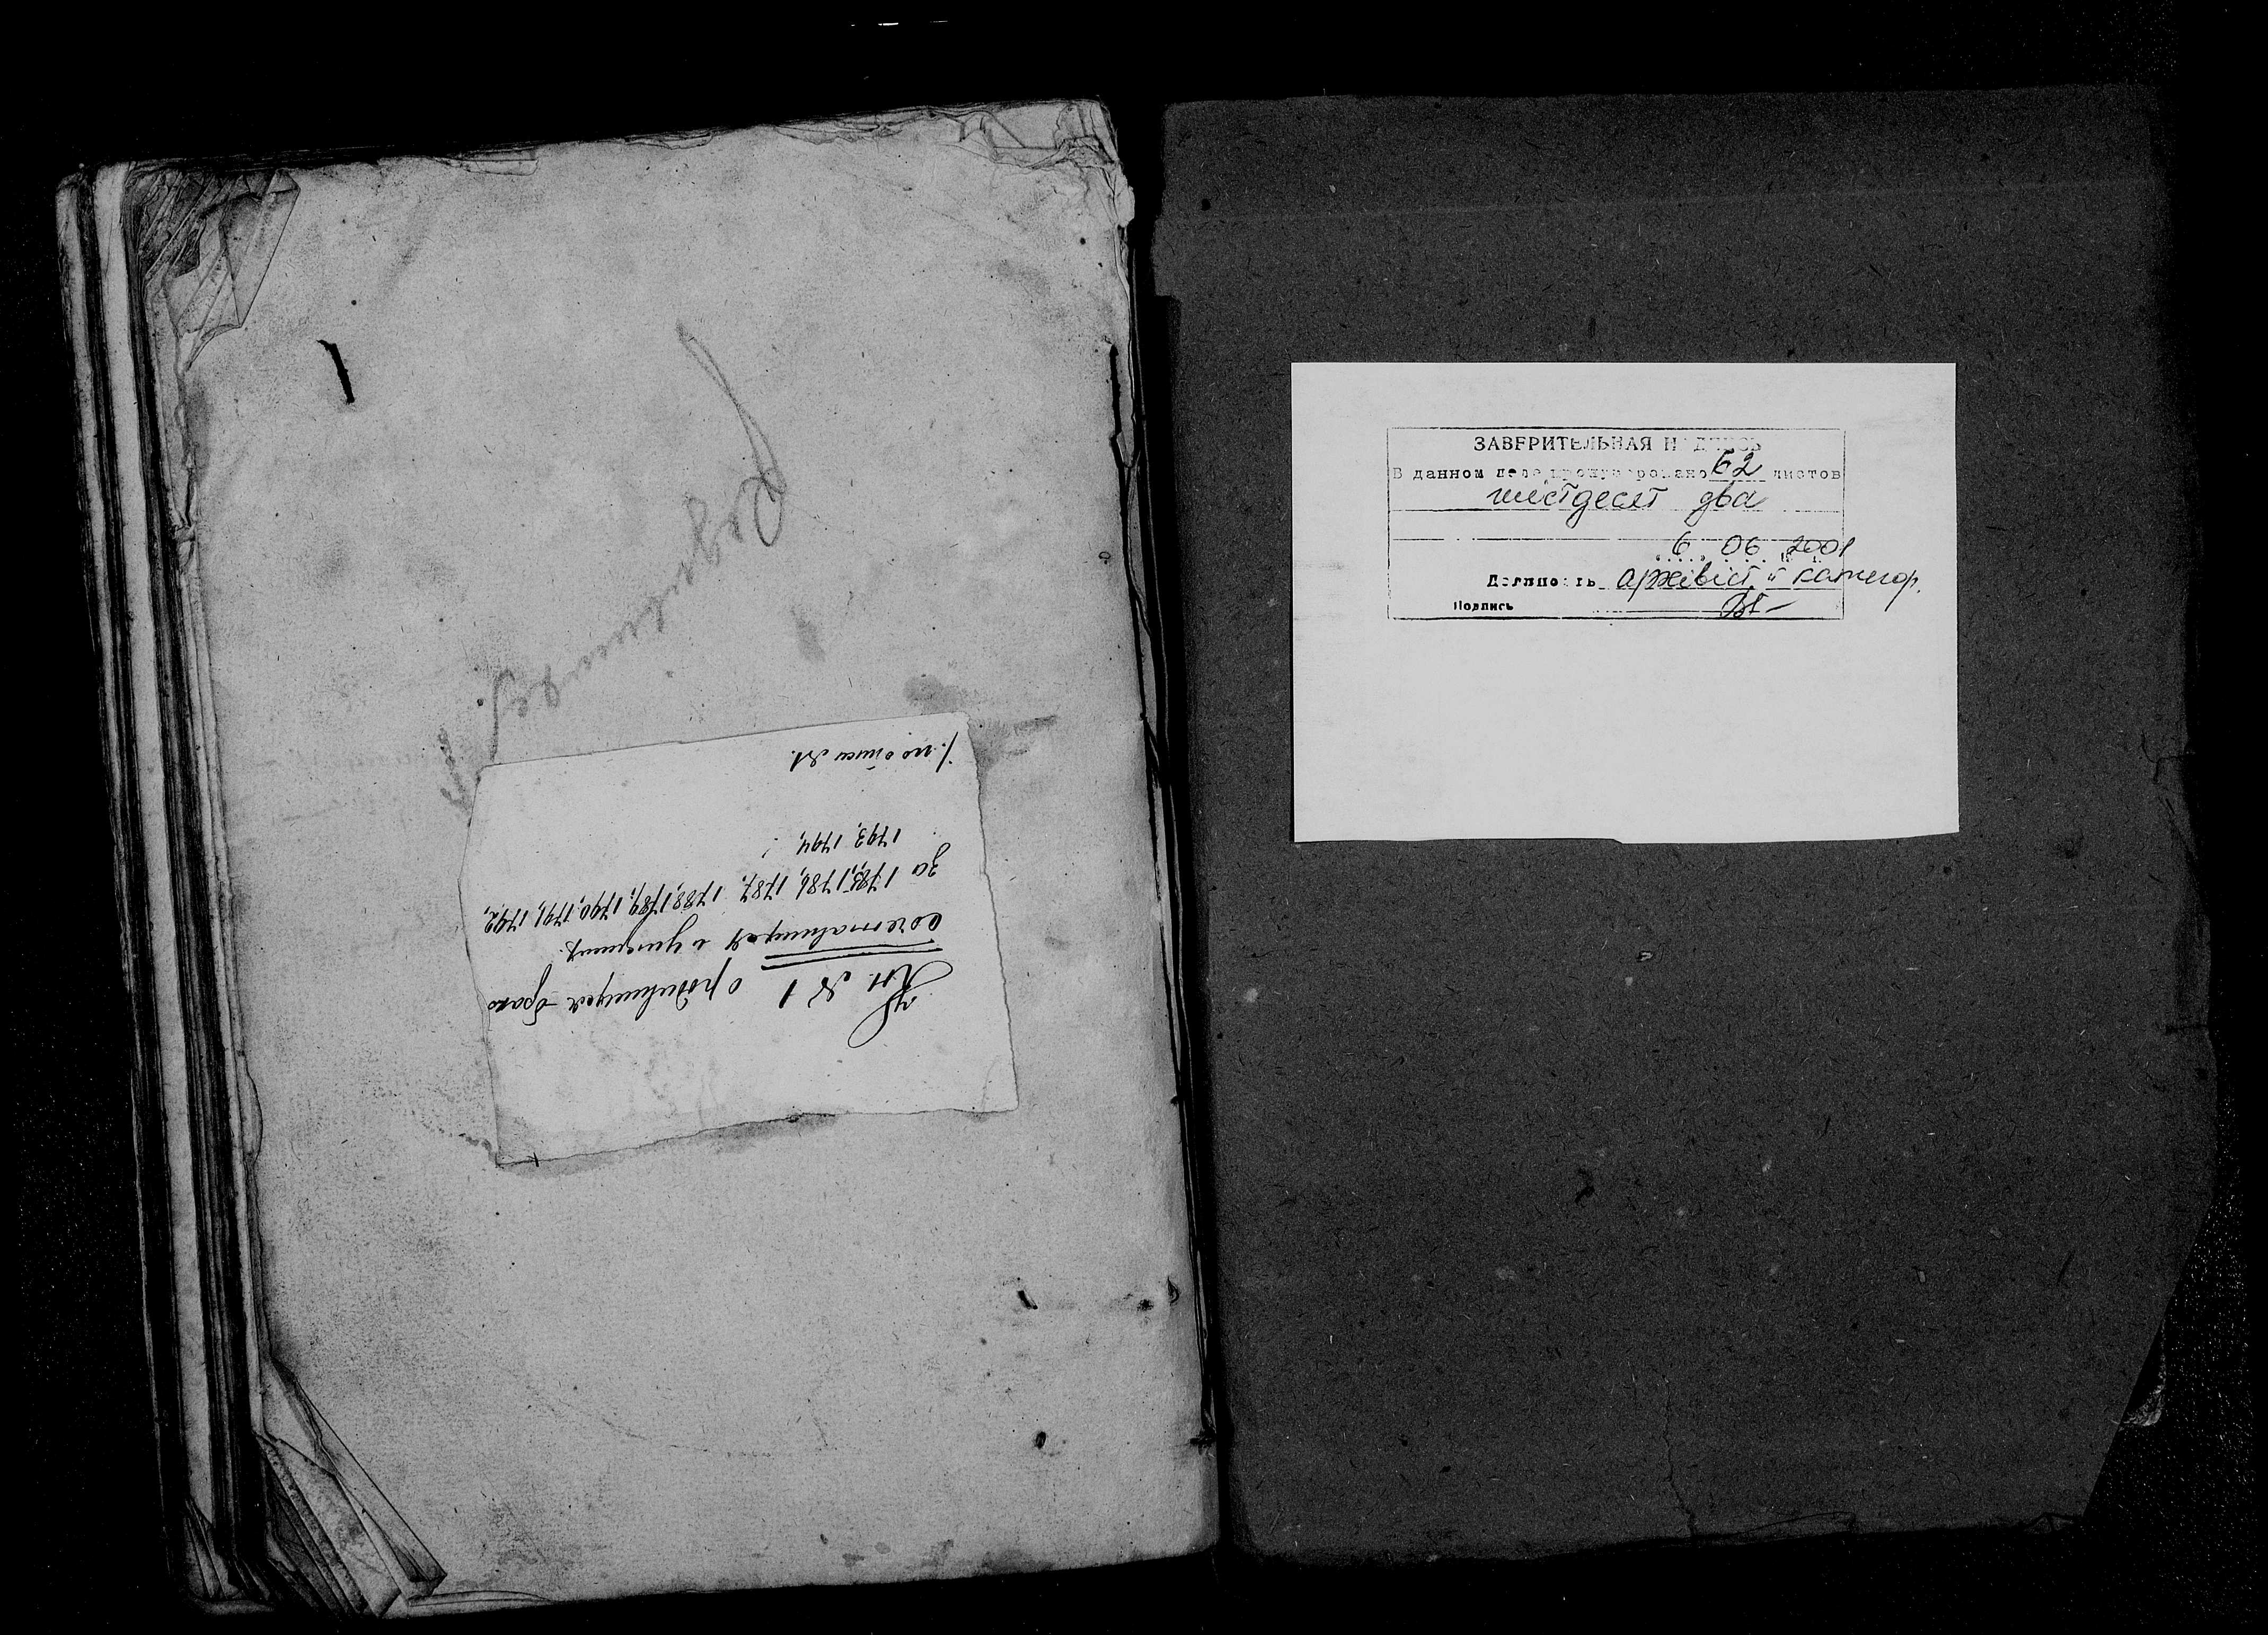 Кн. № 1 о родившихся брако
сочетавшихся и умерших.
за 1785, 1786, 1787, 1788, 1789, 1790, 1791, 1792,
1793, 1794,
по описи №1.
ЗАВЕРИТЕЛЬНАЯ НАДПИСЬ
В данном деле пронумеровано 62 листов
шістдесят два
6. 06. 2001
Должность архівіст II категор.
Подпись